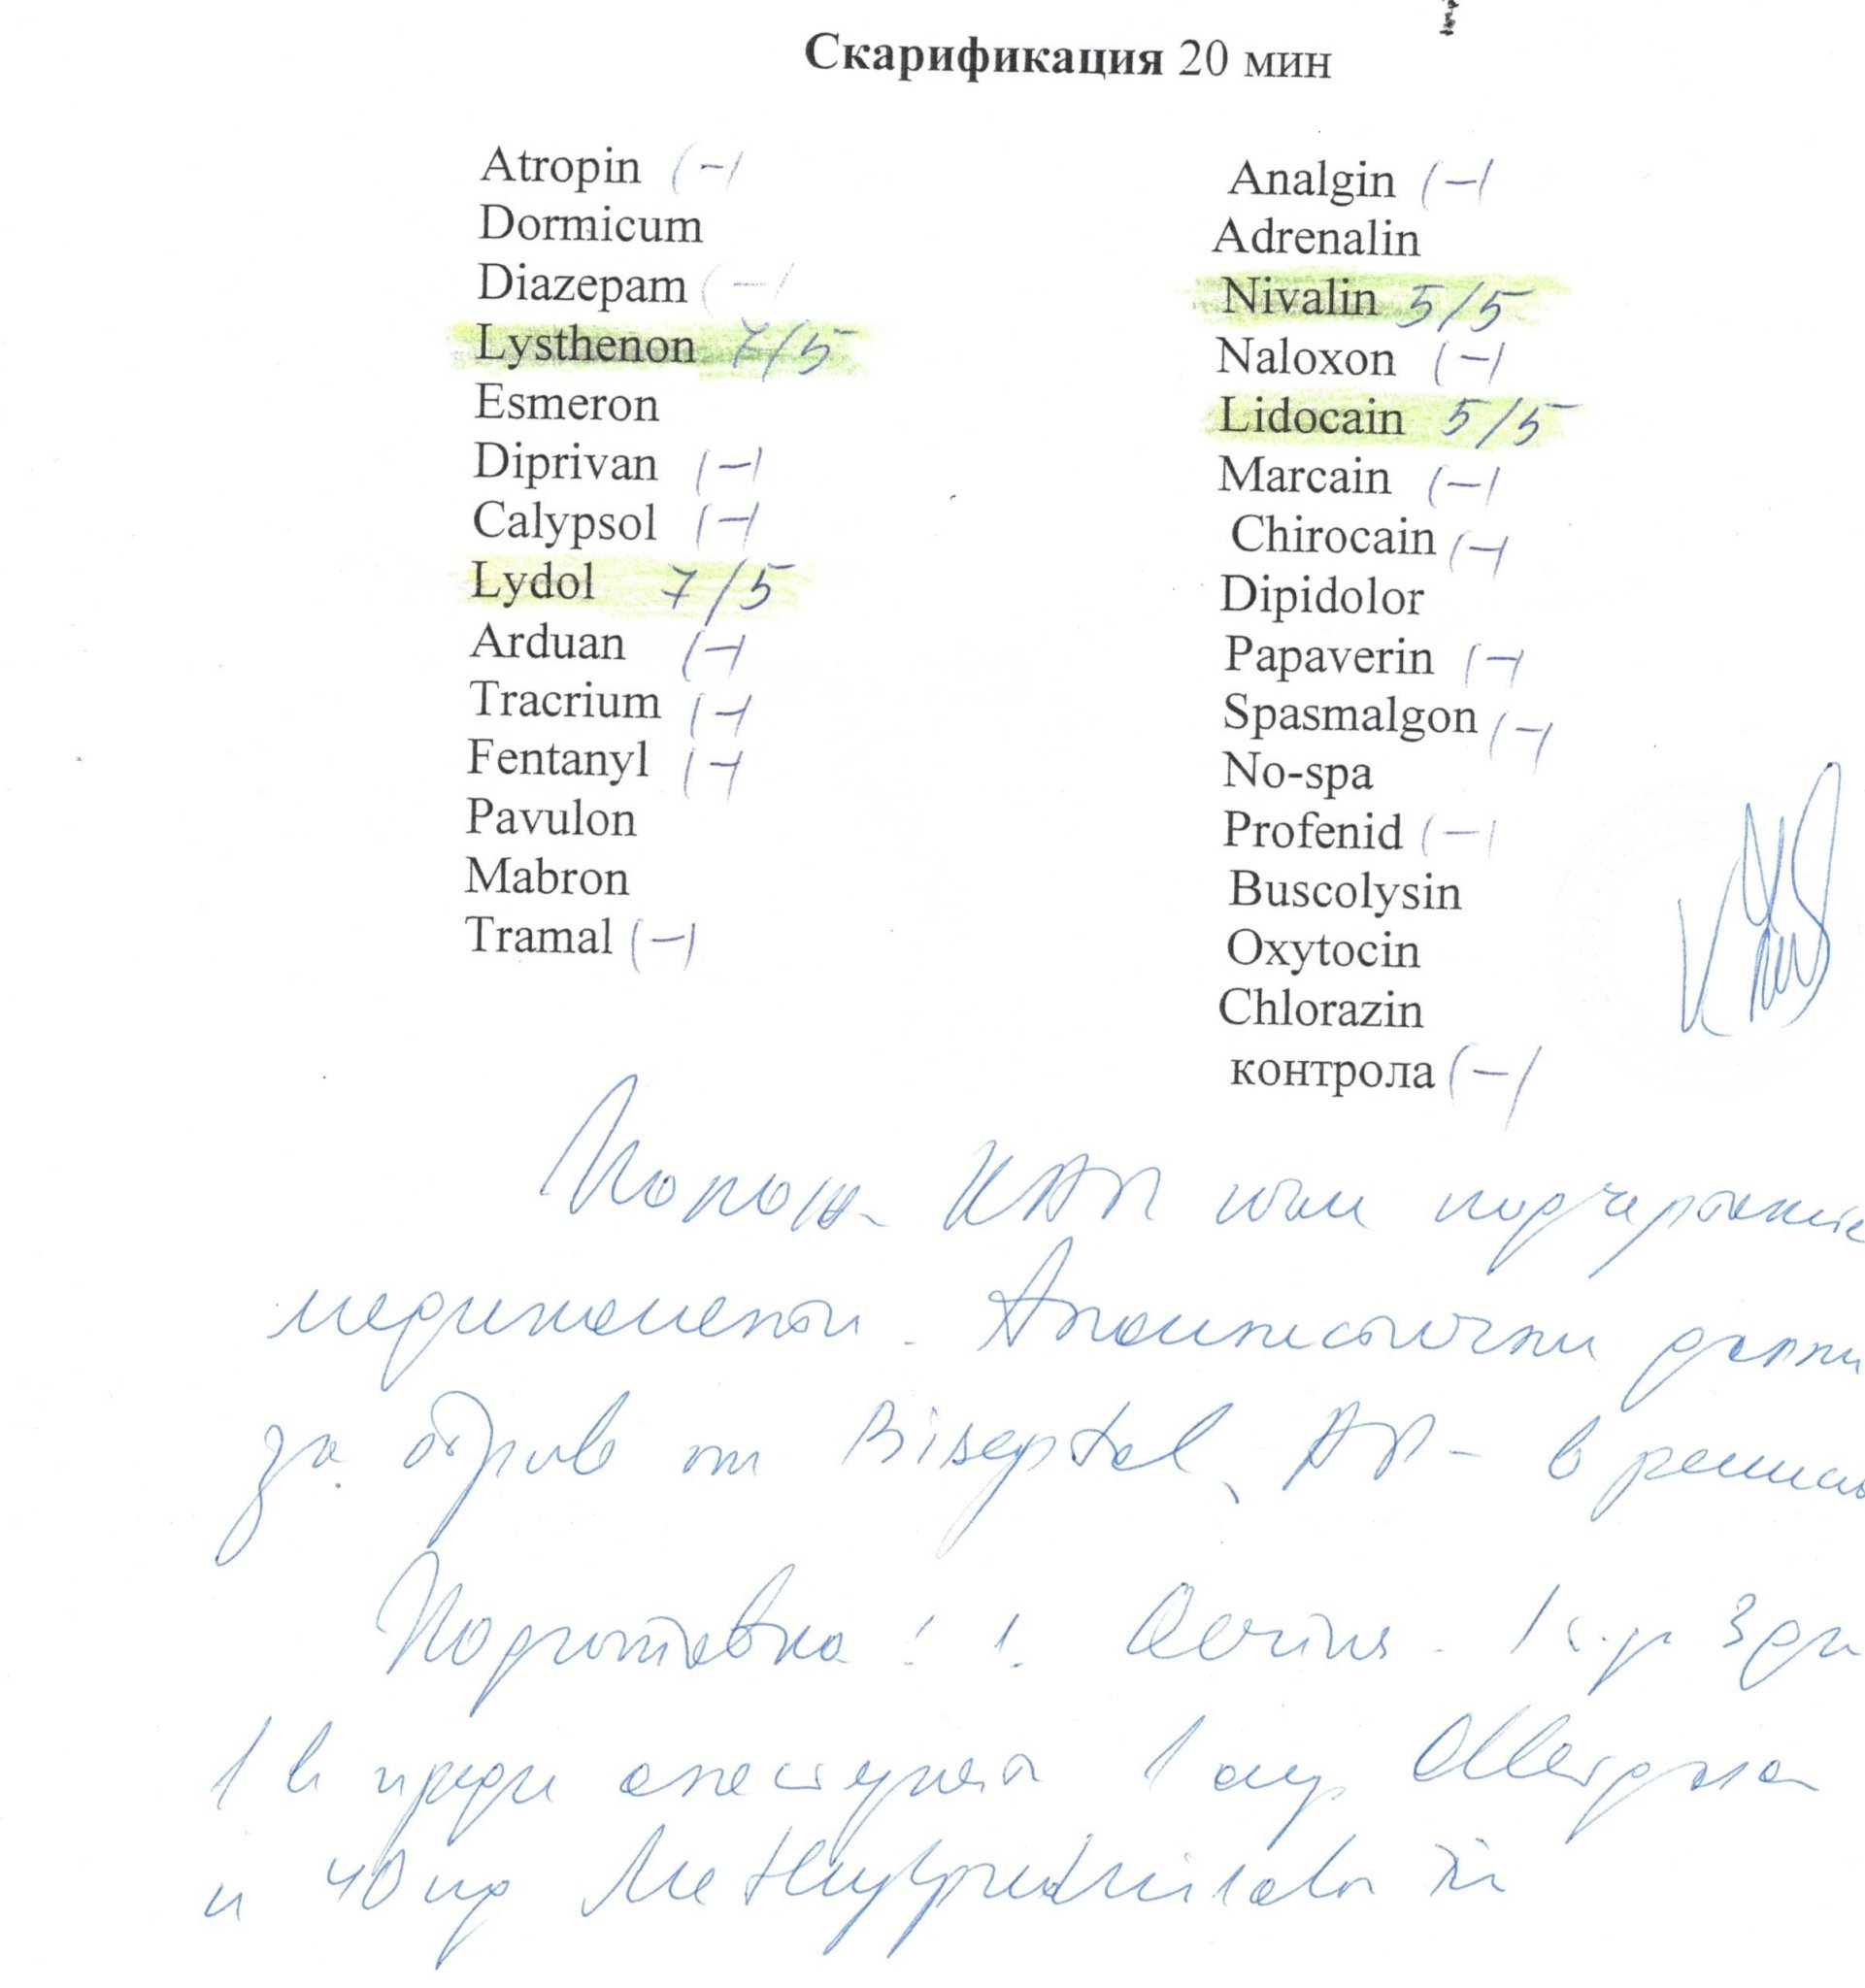 Скарификация 20 мин
Atropin (-)
Dormicum
Diazepam (-)
Lysthenon 7/5
Esmeron
Diprivan (-)
Calypsol (-)
Lydol 7/5
Arduan (-)
Tracrium (-)
Fentanyl (-)
Pavulon
Mabron
Tramal (-)
Analgin (-)
Adrenalin
Nivalin 5/5
Naloxon (-)
Lidocain 5/5
Marcain (-)
Chirocain (-)
Dipidolor
Papaverin (-)
Spasmalgon (-)
No-spa
Profenid (-)
Buscolysin
Oxytocin
Chlorazin
контрола (-)
КАП към
медикаменти. Анамнестични данни
за обрив от Biseptol,
Подготовка: 1. Aerius
преди анестезия 1 амр
и 40 mg